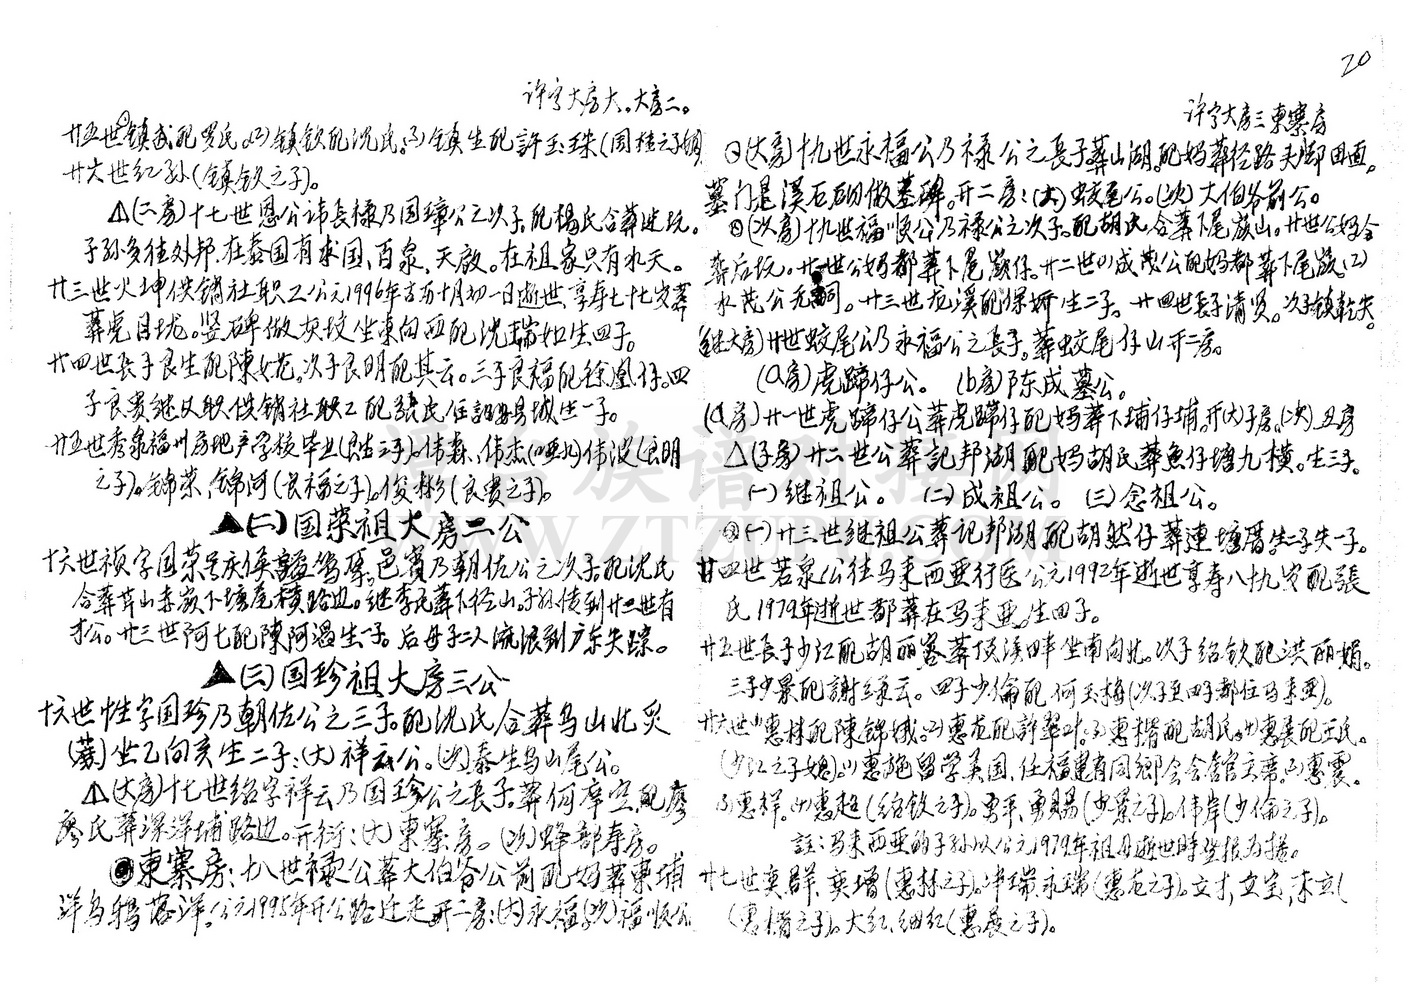 许字大房大。大房二。
廿五世(1)镇武配罗氏。(2)镇钦配沈氏。(3)镇生配許玉珠(国桂之子媳)
廿六世红孙(镇钦之子)。
△(二房)十七世恩公讳長棣乃国璋公之次子。配楊氏合葬进坑。
子孙多往外邦,在泰国有求国、百泉、天啟。在祖家只有水天。
廿三世火坤供銷社职工公元1996年古历十月初一日逝世,享寿七十七岁葬
葬虎目垅。竖碑做灰坟坐東向西配沈瑞如生四子。
廿四世長子良生配陳女花。次子良明配其云。三子良福配徐凰仔。四
子良貴继父职供销社职工配張氏住詔安县城生一子。
廿五世秀泉福州房地产学校毕业(良生之子)。伟森、伟杰(哑)伟波(良明
之子)。錦荣、錦河(良福之子)。俊彬(良貴之子)。
▲(二)国荣祖大房二公
十六世祯字国荣号庆侯諡篤厚。邑賓乃朝佐公之次子。配沈氏
合葬 山赤嶺下塘尾横路边。继李氏葬下径山。子孙传到廿二世有
才公。廿三世阿七配陳阿温生一子。后母子二人流浪到广东失踪。
▲(三)国珍祖大房三公
十六世性字国珍乃朝佐公之三子。配沈氏合葬鸟山北
(葬)坐乙向亥生二子:(大)祥云公。(次)泰生鸟山尾公。
△(大房)十七世绍字祥云乃国珍公之長子。葬何厝空配廖
廖氏葬深洋埔路边。开衍:(大)東寨房。(次)蜂部寿房。
◉東寨房:十八世禄公葬大伯爷公前配妈葬東埔
洋鸟鸦落洋。公元1995年开公路迁走开二房:(大)永福(次)福順公
20
许字大房三東寨房
⊙(大房)十九世永福公乃禄公之長子葬山湖。配妈葬径路头脚田面。
墓门是溪石砌做墓碑。开二房:(大)蛟尾公。(次)大伯爷前公。
⊙(次房)十九世福順公乃禄公之次子。配胡氏合葬下尾嶺山。廿世公妈合
葬后坑。廿一世公妈都葬下尾嶺仔。廿二世(1)成茂公配妈都葬下尾嶺(2)
水茂公无嗣。廿三世龙溪配保娇生二子。廿四世長子清贤。次子镇乾失。
(继大房)廿世蛟尾公乃永福公之長子。葬蛟尾仔山开二房。
(a房)虎蹄仔公。 (b房)陈成墓公。
(a房)廿一世虎蹄仔公葬虎蹄仔配妈葬下埔仔埔。开(大)子房。(次)丑房
△(子房)廿二世公葬記邦湖配妈胡氏葬魚仔塘九横。生三子。
(一)继祖公。 (二)成祖公。 (三)念祖公。
⊙(一)廿三世继祖公葬记邦湖配胡然仔葬連塘厝生二子失一子。
廿四世若泉公往马来西亚行医公元1992年逝世享寿八十九岁配張
氏1979年逝世都葬在马来亚。生四子。
廿五世長子少江配胡丽容葬顶溪畔坐南向北。次子绍钦配洪丽娟。
三子少景配謝绿云。四子少倫配何玉梅(次子至四子都住马来亚)。
廿六世(1)惠林配陳錦娥。(2)惠龙配許翠叶。(3)惠楷配胡氏。(4)惠展配王氏。
(少江之子媳)。(1)惠施留学美国,任福建有同鄉会会館主席。(2)惠震。
(3)惠祥。(4)惠超(绍钦之子)。勇平、勇賜(少景之子)。伟岸(少倫之子)。
註:马来西亚的子孙以公元1979年祖母逝世時登报为據。
廿七世奕群、奕增(惠林之子)。冲瑞、永瑞(惠龙之子)。文才、文宝、木立(
(惠楷之子)。大红、细红(惠展之子)。